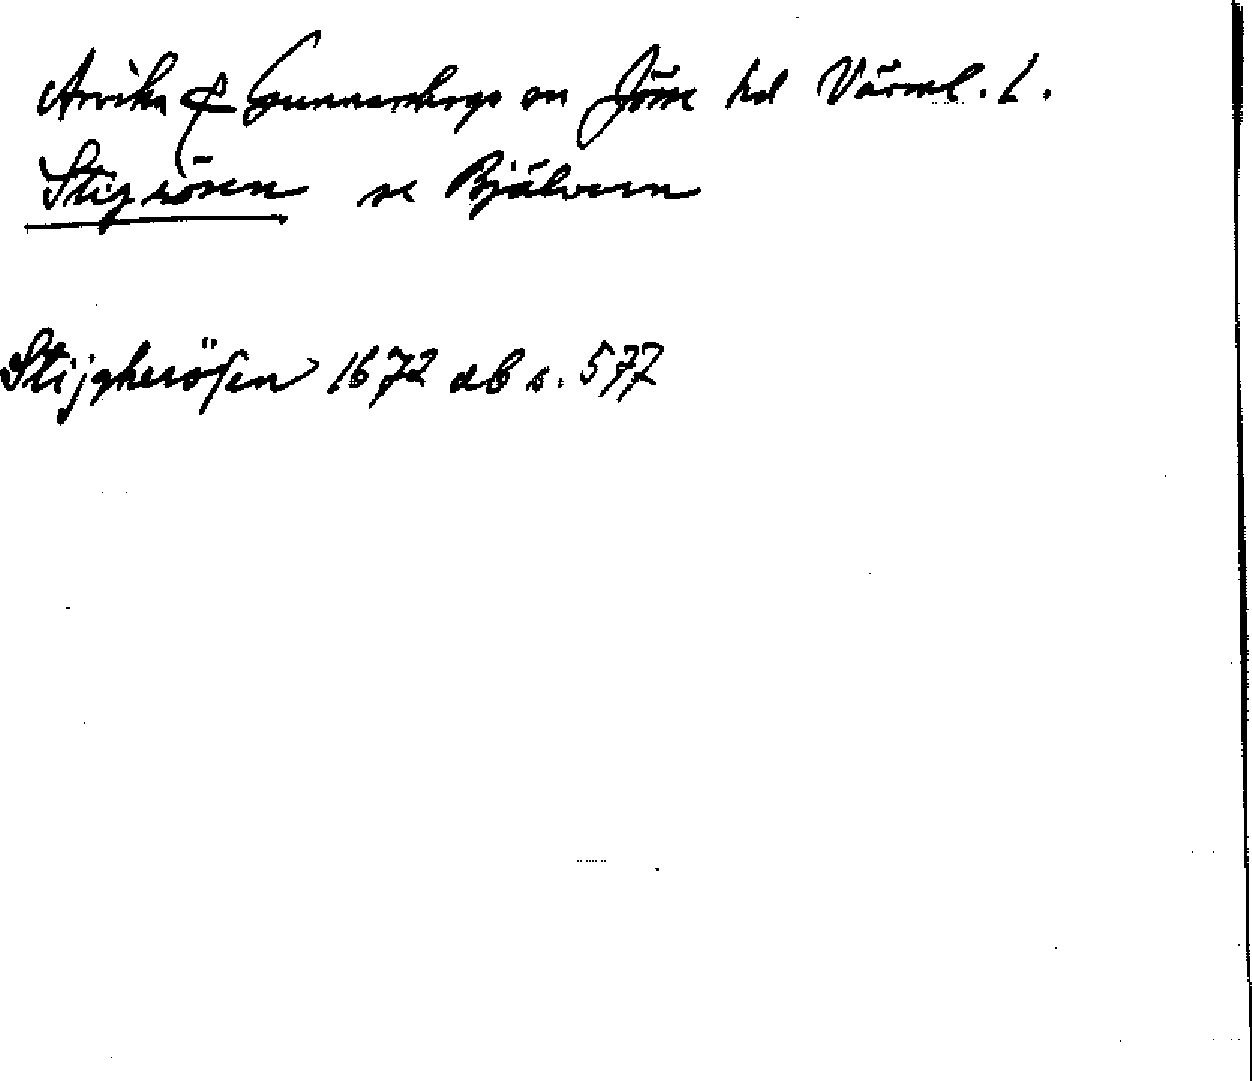 Arvika & Gunnarskogs sn Jösse hd Värml. L.
Stigrösen se Bjälvern
Stijgherösen 1672 db s. 577